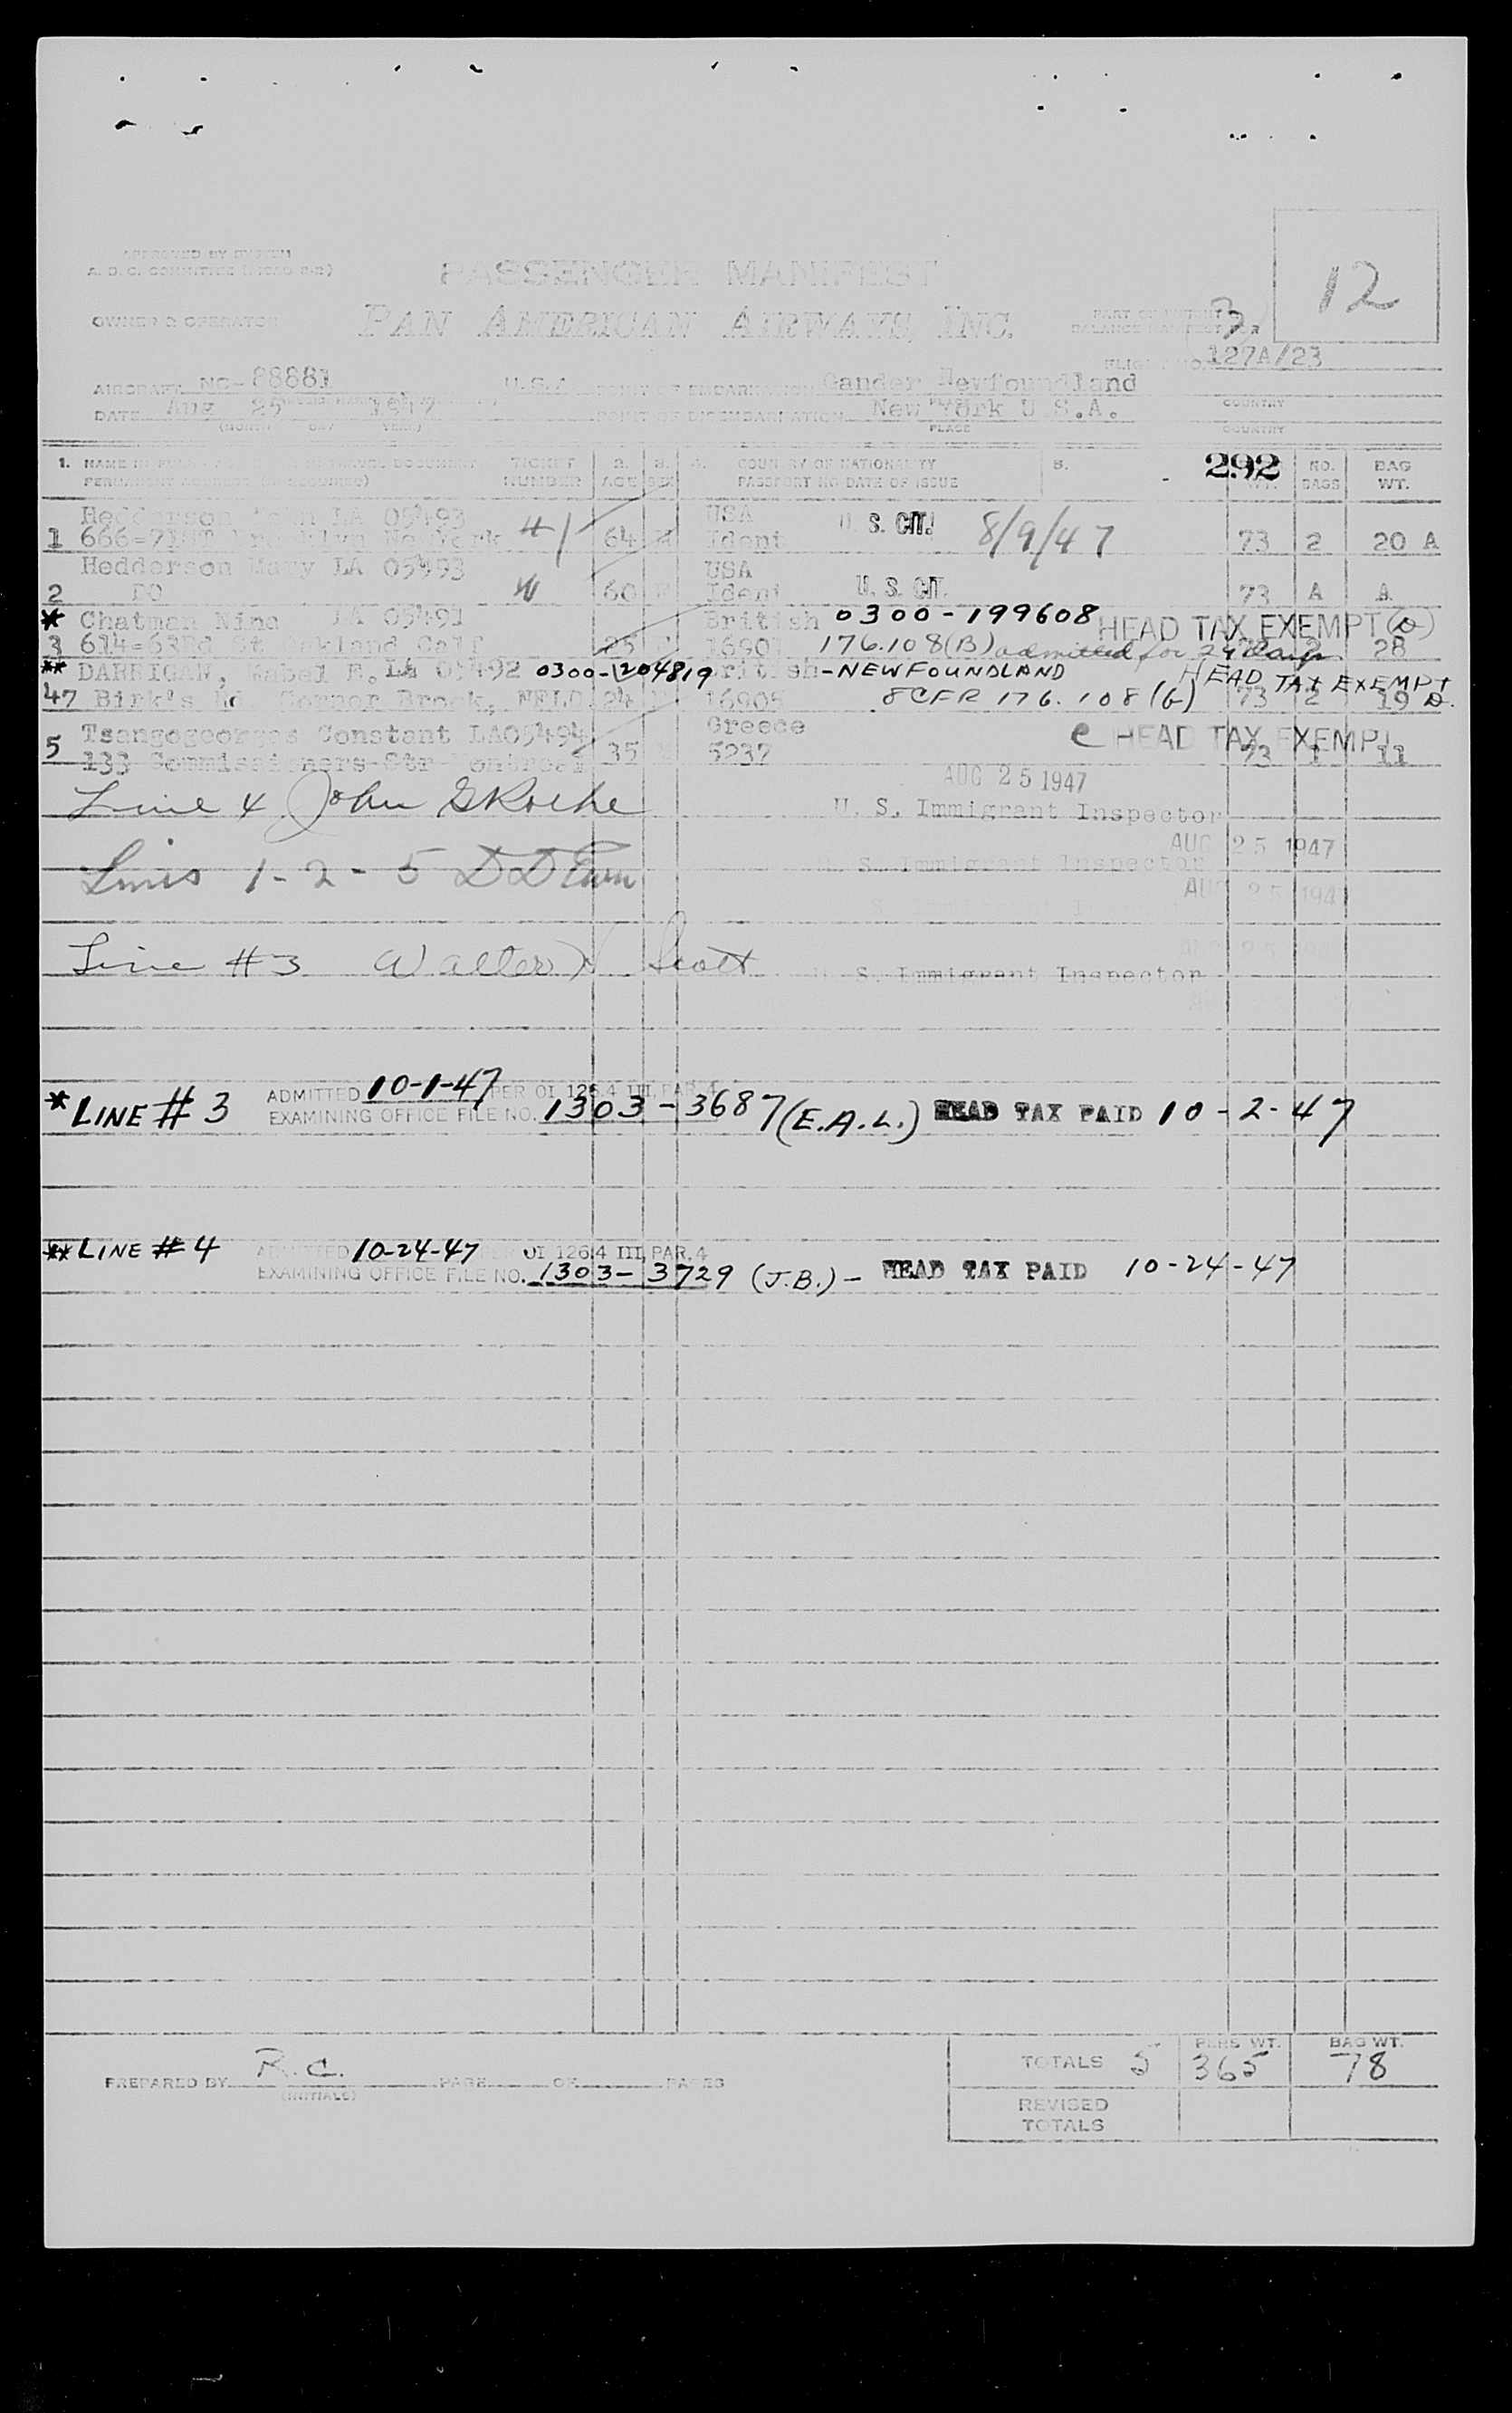 APPROVED BY SYSTEM
PASSENGER MANIFEST
12
OWNER OR OPERATOR PAN AMERICAN AIRWAYS, INC.
127A/23
AIRCRAFT NC- 88881 U.S.A. POINT OF EMBARKATION Gander Newfoundland
DATE Aug 25 1947 POINT OF DISEMBARKATION New York U S.A.
(MONTH DAY YEAR) PLACE COUNTRY
1. TICKET 2. 3. 4. COUNTRY OF NATIONALITY 5. 292 NO. BAG
NUMBER AGE SEX PASSPORT NO DATE OF ISSUE BAGS WT.
Hedderson LA 05493 USA
1 666-71ST Brooklyn New York 64 M Ident U. S. CIT. 8/9/47 73 2 20 A
Hedderson Mary LA 05493 USA
2 DO 60 Ident U. S. CIT. 73 A A
* Chatman Nina LA 05491 British 0300-199608 HEAD TAX EXEMPT (D)
3 614-63Rd St Oakland Calif 25 176.108(B) admitted for 29 days 28
** DARRIGAN, Mabel E. LA 05492 0300-204819 British-NEWFOUNDLAND HEAD TAX EXEMPT
47 Birk's Rd Corner Brook, NFLD 24 8 CFR 176.108(b) 73 2 19 D.
Tsangogeorgas Constant LA05494 Greece e HEAD TAX EXEMPT
5 133 Commissioners Str Montreal 35 5237 73 1 11
AUG 25 1947
Line 4 John G Roche U. S. Immigrant Inspector
AUG 25 1947
Lines 1-2-5 D D U. S. Immigrant Inspector
AUG 25 1947
Line #3 Walter Scott U. S. Immigrant Inspector
* LINE #3 ADMITTED 10-1-47 PER OI 126.4 III, PAR. 4
EXAMINING OFFICE FILE NO. 1303-3687 (E.A.L.) HEAD TAX PAID 10-2-47
** LINE #4 ADMITTED 10-24-47 PER OI 126.4 III, PAR. 4
EXAMINING OFFICE FILE NO. 1303-3729 (J.B.) - HEAD TAX PAID 10-24-47
PERS WT. BAG WT.
TOTALS 5 365 78
PREPARED BY R.C. PAGE OF PAGES
(INITIALS)
REVISED
TOTALS